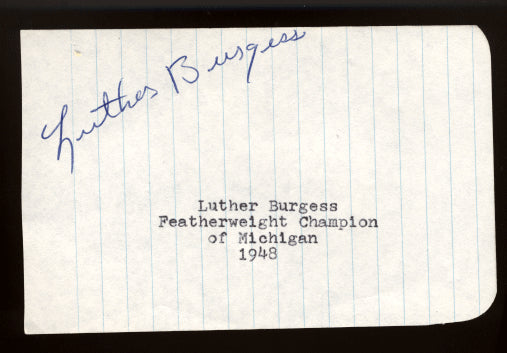 Luther Burgess
Luther Burgess
Featherweight Champion
of Michigan
1948